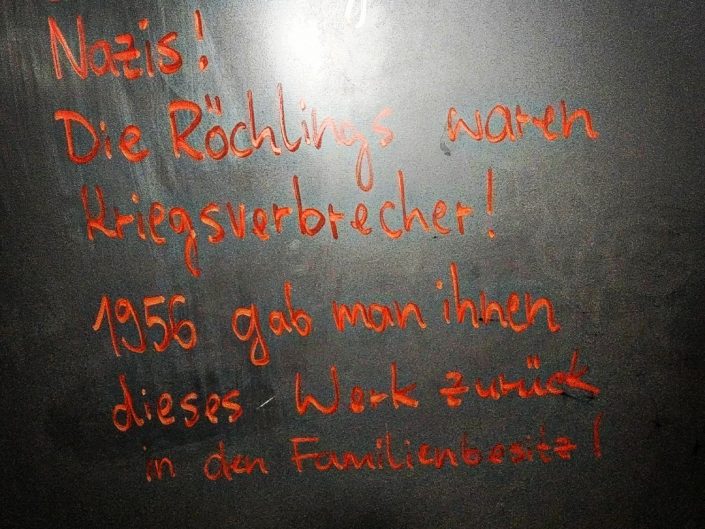 Nazis!
Die Röchlings waren
Kriegsverbrecher!
1956 gab man ihnen
dieses Werk zurück
in den Familienbesitz!